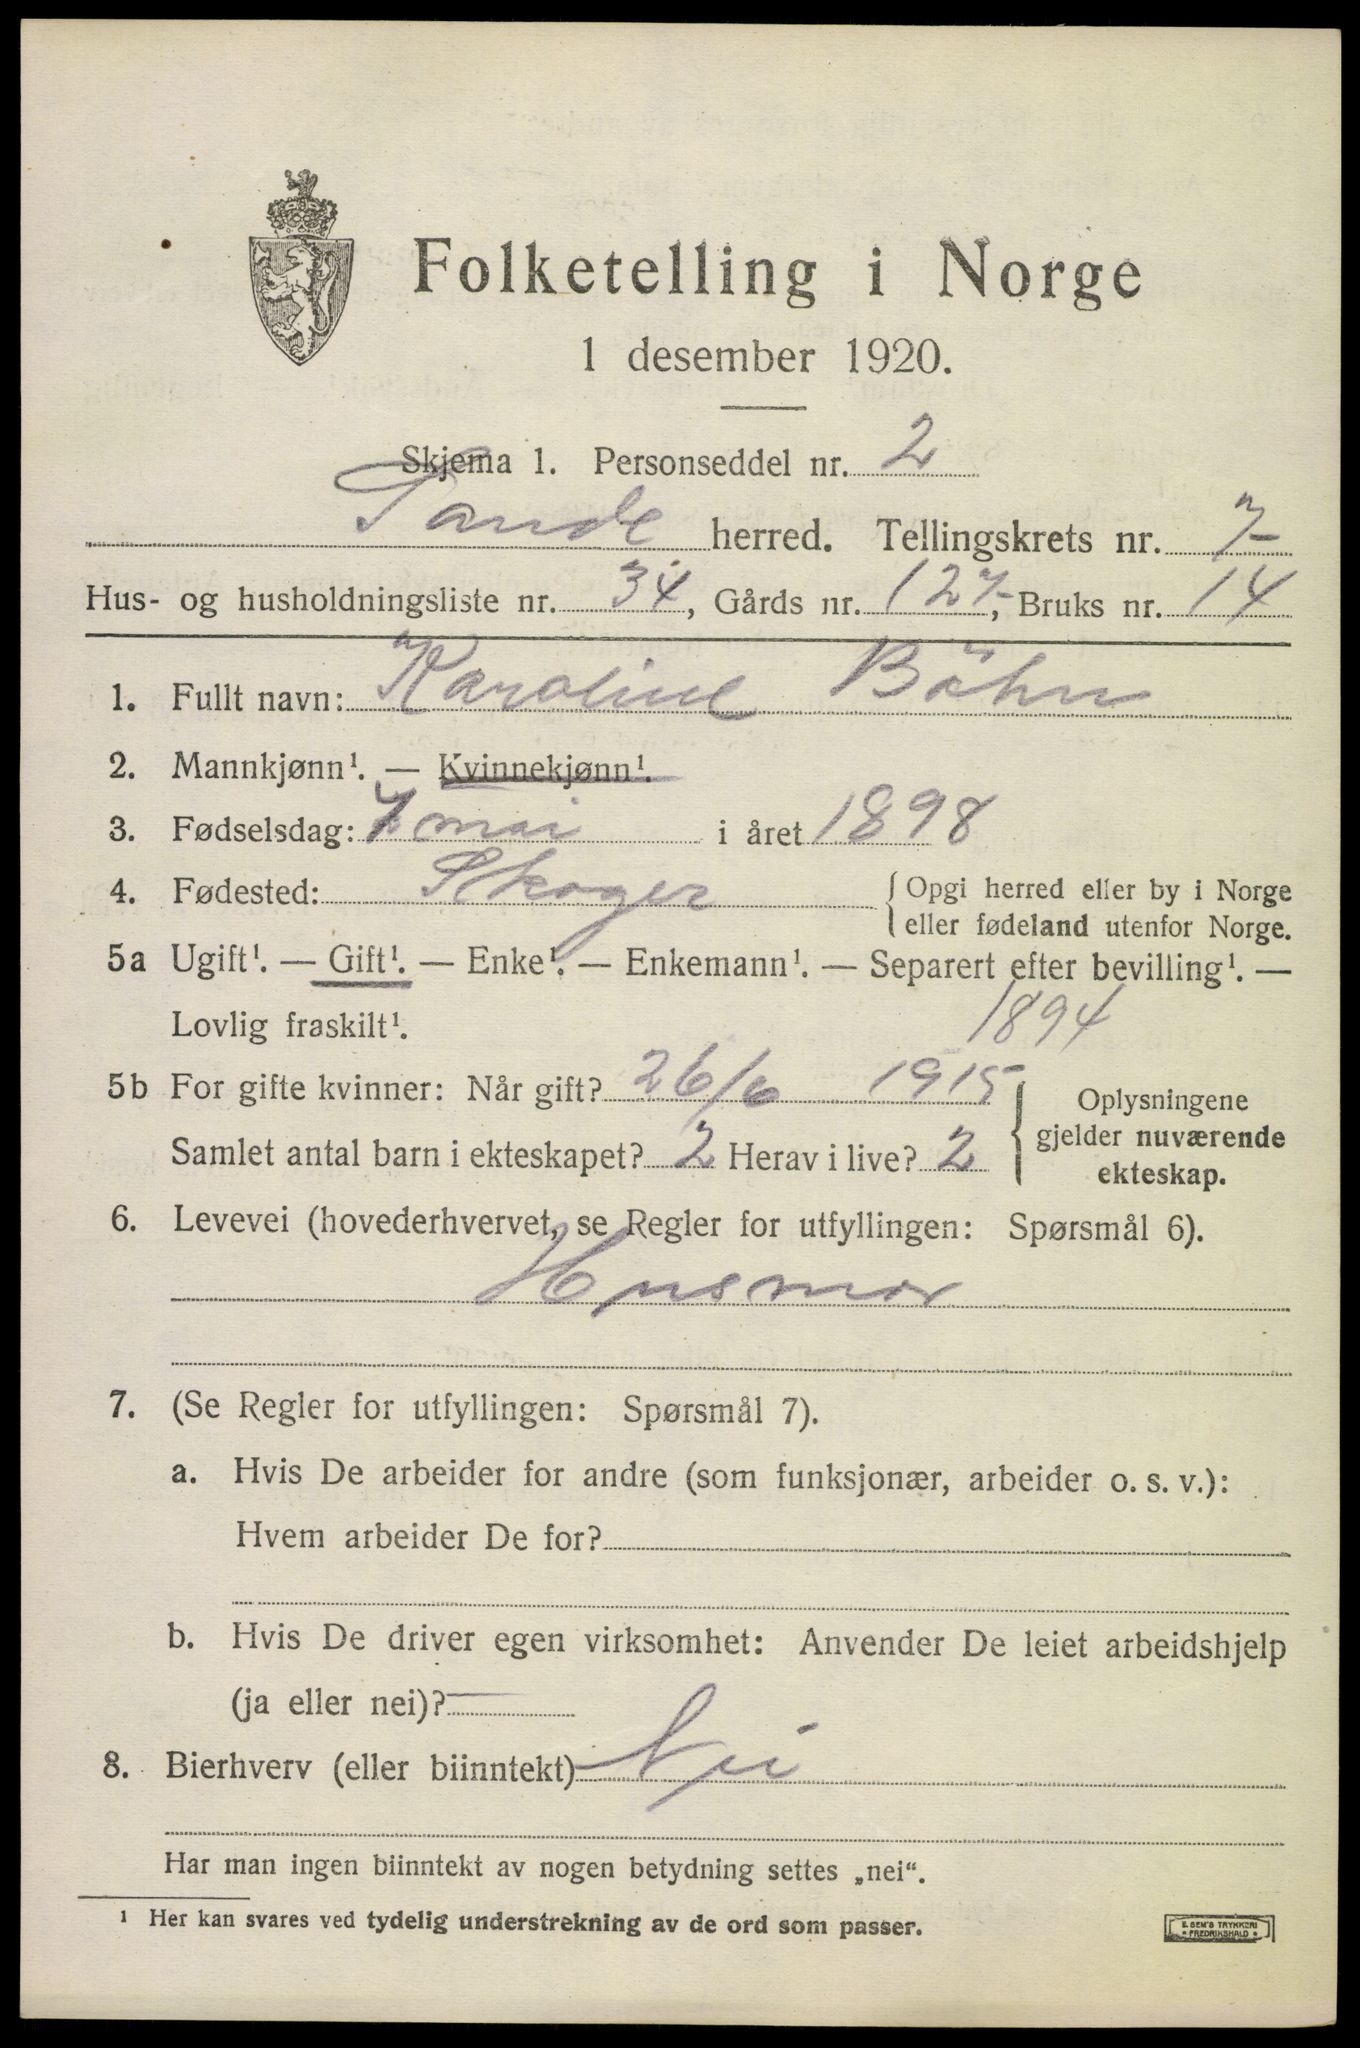 Folketelling i Norge
1 desember 1920.
Skjema 1. Personseddel nr. 2
Sande herred. Tellingskrets nr. 7
Hus- og husholdningsliste nr. 34, Gårds nr. 127, Bruks nr. 14
1. Fullt navn: Karoline Böhn
2. Mannkjønn¹. — Kvinnekjønn¹.
3. Fødselsdag: 7 mai i året 1898
4. Fødested: Skoger {Opgi herred eller by i Norge
eller fødeland utenfor Norge.
5a Ugift¹. — Gift¹. — Enke¹. — Enkemann¹. — Separert efter bevilling¹. —
Lovlig fraskilt¹. 1894
5b For gifte kvinner: Når gift? 26/6 1915
Samlet antal barn i ekteskapet? 2 Herav i live? 2
Oplysningene
gjelder nuværende
ekteskap.
6. Levevei (hovederhvervet, se Regler for utfyllingen: Spørsmål 6).
Husmor
7. (Se Regler for utfyllingen: Spørsmål 7).
a. Hvis De arbeider for andre (som funksjonær, arbeider o. s. v.):
Hvem arbeider De for?
b. Hvis De driver egen virksomhet: Anvender De leiet arbeidshjelp
(ja eller nei)?
8. Bierhverv (eller biinntekt) Nei
Har man ingen biinntekt av nogen betydning settes „nei“.
¹ Her kan svares ved tydelig understrekning av de ord som passer.
E. SEM'S TRYKKERI
• FREDRIKSHALD •